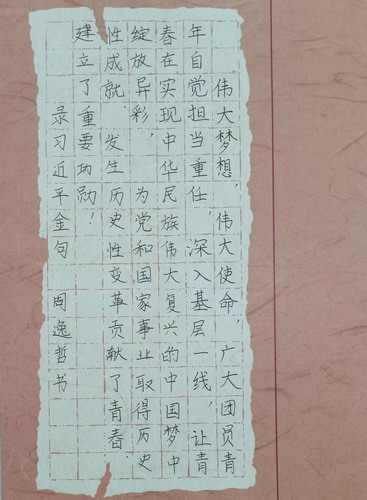 伟大梦想，伟大使命，广大团员青
年自觉担当重任，深入基层一线，让青
春在实现中华民族伟大复兴的中国梦中
绽放异彩，为党和国家事业取得历史
性成就、发生历史性变革贡献了青春、
建立了重要功勋！
录习近平金句 周逸哲书